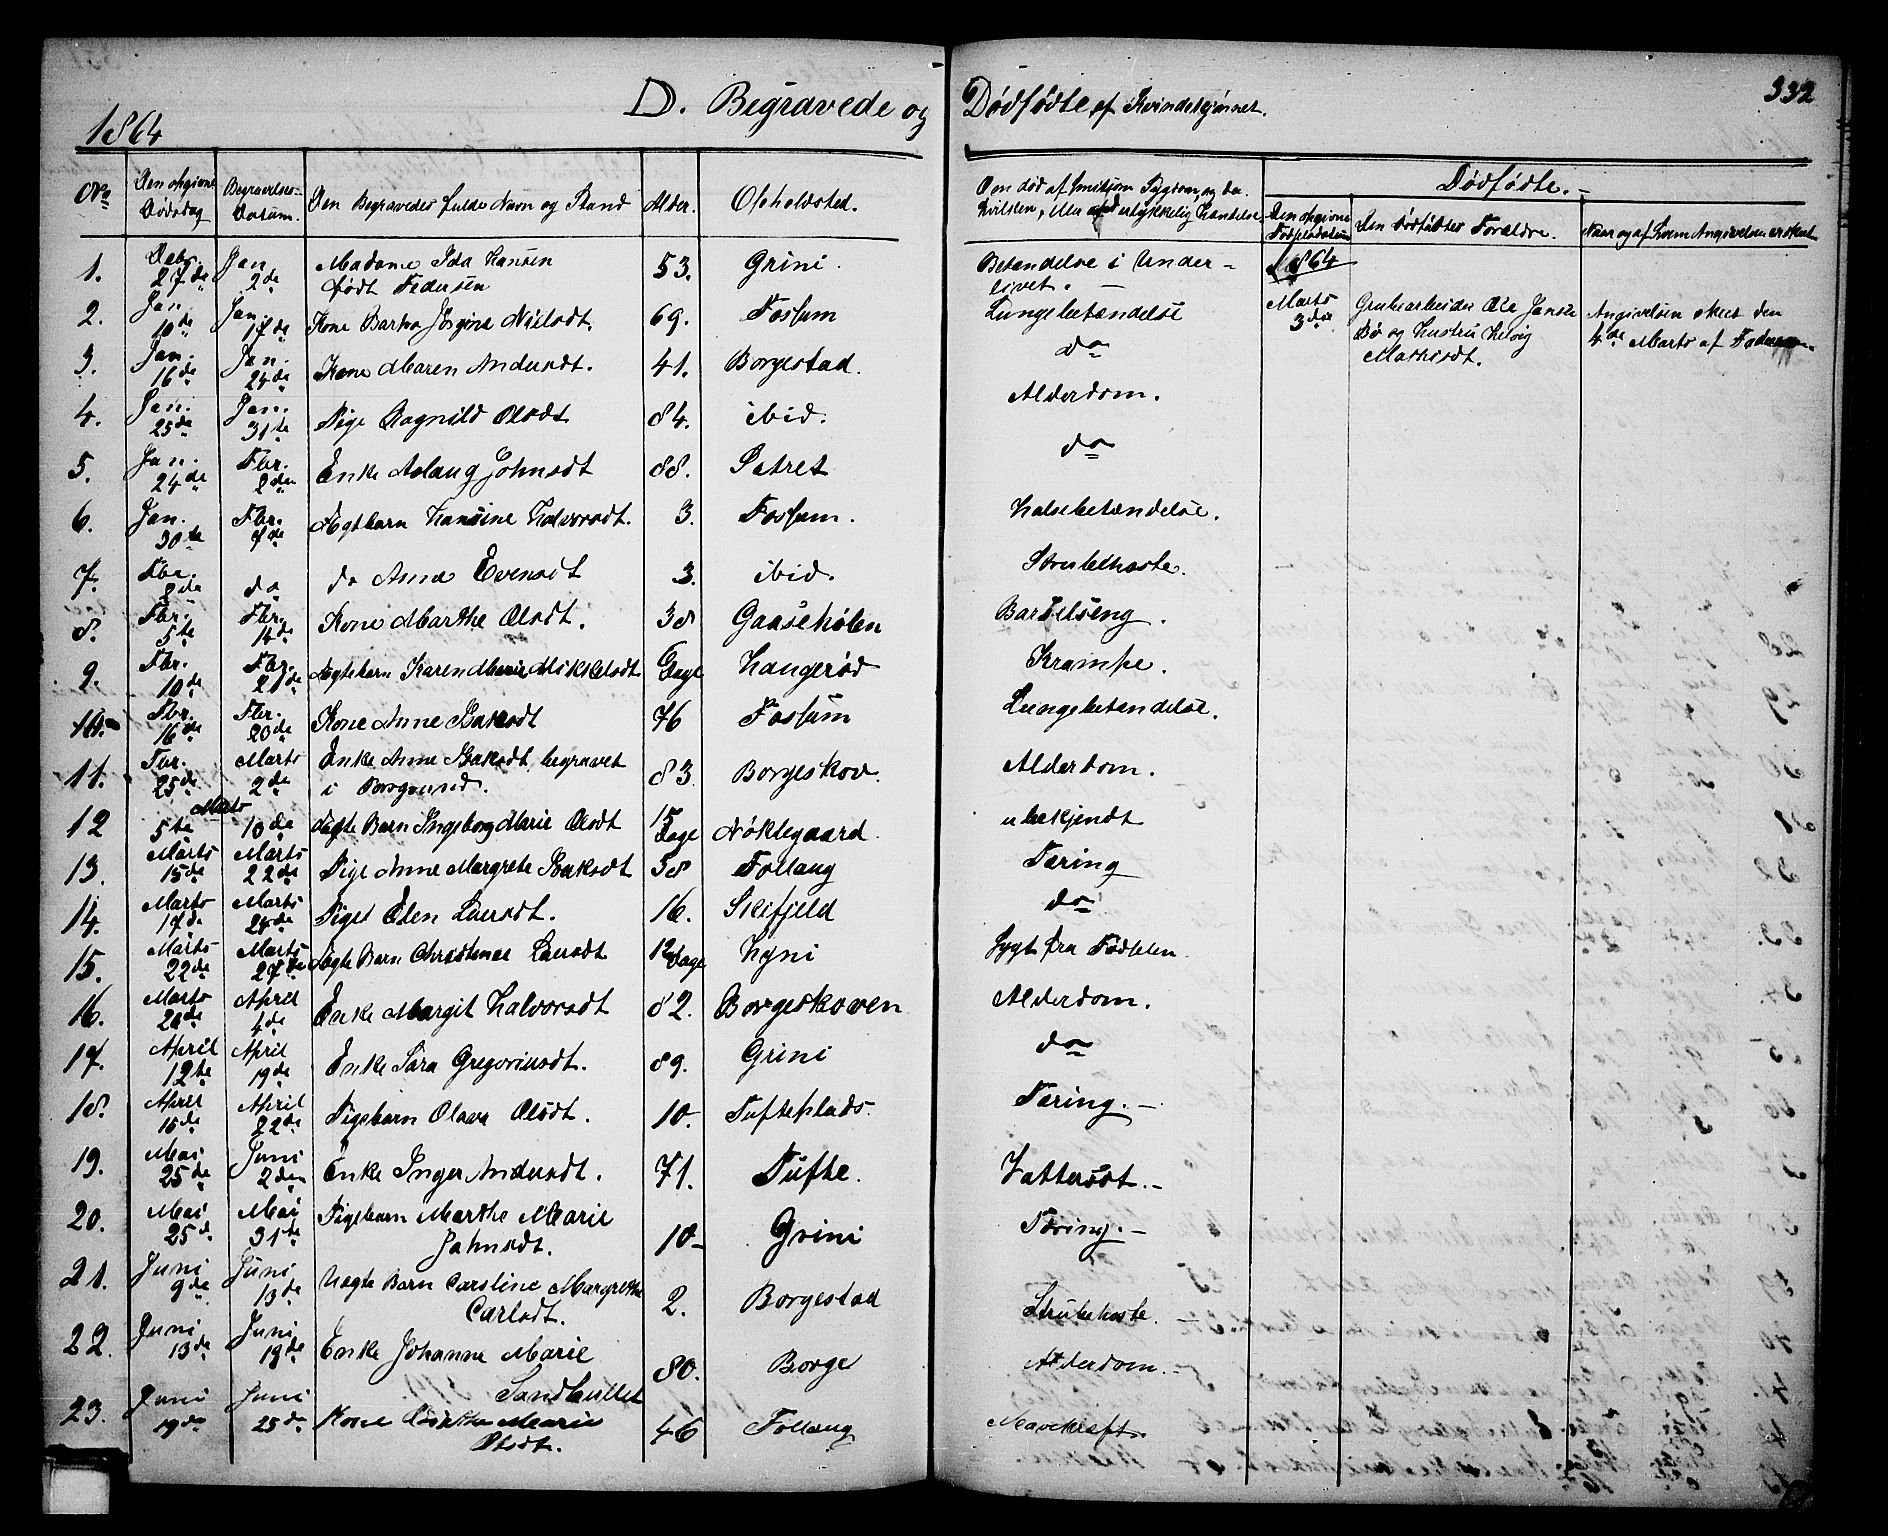 332
D. Begravede og Dødfødte af Kvindekjønnet.
1864
No
Den opgivne Dødsdag
Begravelses-Datum.
Den Begravedes fulde Navn og Stand
Alder.
Opholdsted.
Den død af smitsom Sygdom, og da
hvilken, eller
ulykkelig Hændelse.
Dødfødte.-
Den opgivne Fødselsdatum
Den Dødfødtes Forældre.
Naar og af hvem Angivelsen er skeet
1. Decbr. 27de Jan 2de Madame Ida Hansen
født Pedersen 53. Grini. Betændelse i Under-
livet.- 1864
2. Jan. 10de Jan. 17de Kone Bartha Jørgine Nielsdt. 69. Fossum Lungebetændelse Marts 3die Grubearbeider Ole Jansen
Bø og Hustru Helvig
Mathisdt. Angivelsen skeet den
4de Marts af Faderen
3. Jan. 16de Jan. 24de Kone Maren Andersdt. 41. Borgestad. do
4. Jan. 25de Jan. 31te Pige Ragnild Olsdt 84. ibid. Alderdom.
5. Jan. 24de Fbr. 2den Enke Aslaug Johnsdt 88. Sætret do
6. Jan. 30te Fbr. 7de Ægtebarn Hansine Halvorsdt. 3. Fossum. Halsebetændelse.
7. Fbr. 2de do do Anne Evensdt 3. ibid. Strubehoste.
8. Fbr. 5te Fbr. 14de Kone Marthe Olsdt. 38 Gaasehølen Barselseng.
9. Fbr. 10de Fbr. 21de Ægtebarn Karen Marie Mikkelsdt 6 Dage Haugerød Krampe.
10. Fbr. 16de Fbr. 20de Kone Anne Isaksdt 76 Fossum Lungebetændelse.
11. Fbr. 25de Marts 2de Enke Anne Isaksdt. begravet
i Porsgrund. 83 Borgeskov. Alderdom.
12 Marts 5te 10de Ægte Barn Ingeborg Marie Olsdt 15 Dage Nøklegaard ubekjendt
13. Marts 15de Marts 22de Pige Anne Margrete Isaksdt 38 Follaug Tæring
14. Marts 17de Marts 24de Pige Elen Larsdt. 16. Skifjeld do
15. Marts 22de Marts 27de Ægte Barn Christense Larsdt 12 Dage Hyni Sygt fra Fødselen.
16. Marts 28de April 4de Enke Margit Halvorsdt 82. Borgeskoven Alderdom.
17. April 12te April 19de Enke Sara Gregoriusdt. 89. Grini do
18. April 15de April 22de Pigebarn Olava Olsdt. 10. Tufteplads. Tæring.-
19. Mai 25de Juni 2den Enke Inger Andersdt. 71. Tufte. Vattersot.-
20. Mai 25de Mai 31te Pigebarn Marthe Marie
Johnsdt. 10- Grini Tæring.-
21. Juni 9de Juni 13de Uægte Barn Caroline Margrethe
Carlsdt. 2. Borgestad Strubehoste.-
22. Juni 13de Juni 19de Enke Johanne Marie
80. Borge Alderdom.-
23. Juni 19de Juni 25de Kone Marie
Olsdt. 46 Follaug Mavekræft.